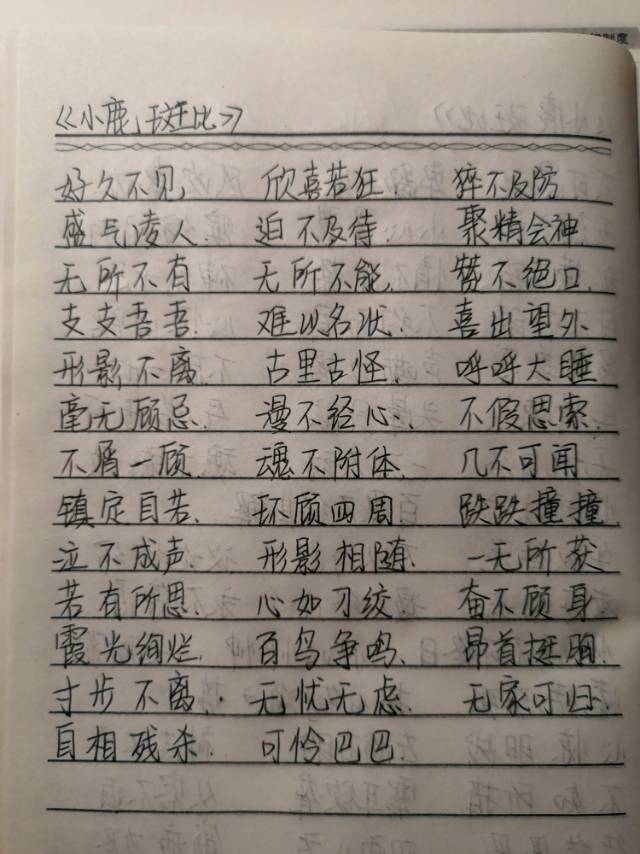 制度
《小鹿斑比》
好久不见 欣喜若狂. 猝不及防
盛气凌人. 迫不及待. 聚精会神.
无所不有 无所不能. 赞不绝口.
支支吾吾. 难以名状. 喜出望外
形影不离. 古里古怪. 呼呼大睡
毫无顾忌. 漫不经心. 不假思索.
不屑一顾. 魂不附体. 几不可闻
镇定自若. 环顾四周. 跌跌撞撞.
泣不成声. 形影相随. 一无所获
若有所思. 心如刀绞. 奋不顾身.
霞光绚烂. 百鸟争鸣. 昂首挺胸.
寸步不离. 无忧无虑. 无家可归.
自相残杀. 可怜巴巴.